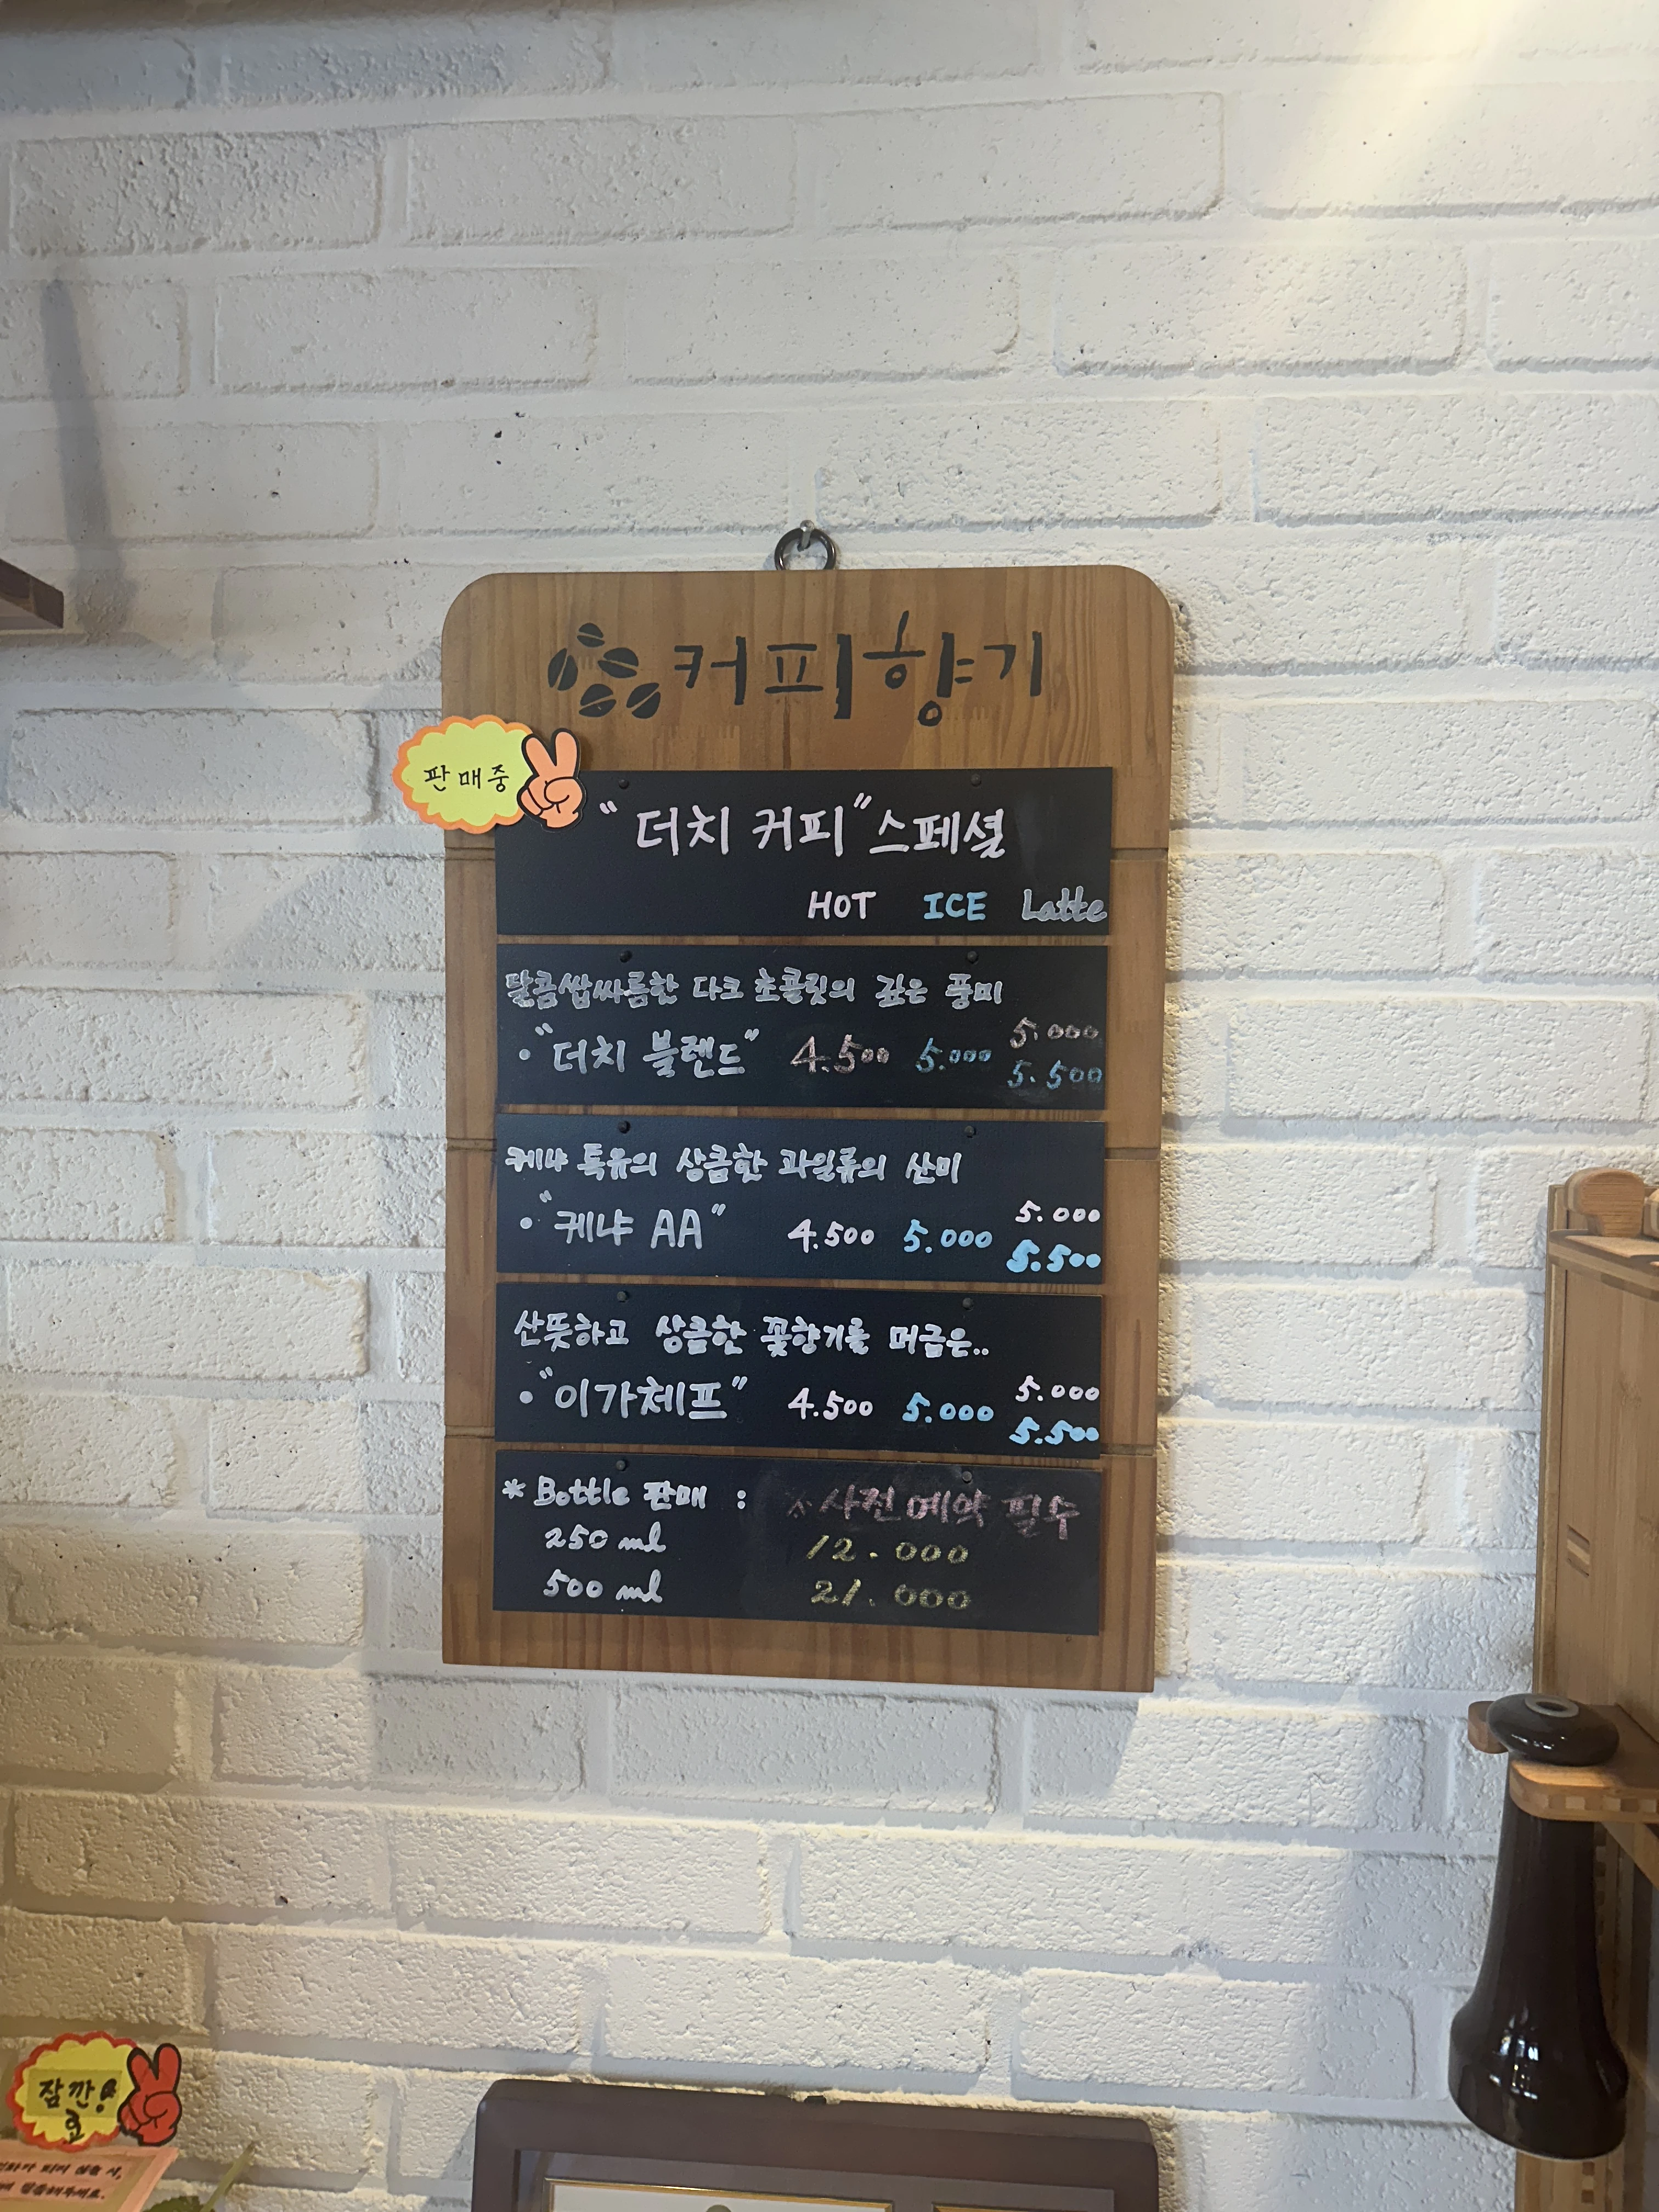 커피향기
판매중
"더치 커피" 스페셜
HOT ICE Latte
달콤쌉싸름한 다크 초콜릿의 깊은 풍미
• "더치 블렌드" 4.500 5.000 5.000
5.500
케냐 특유의 상큼한 과일류의 산미
• "케냐 AA" 4.500 5.000 5.000
5.500
산뜻하고 상큼한 꽃향기를 머금은..
• "이가체프" 4.500 5.000 5.000
5.500
* Bottle 판매 : ※사전예약 필수
250 ml 12.000
500 ml 21.000
잠깐!